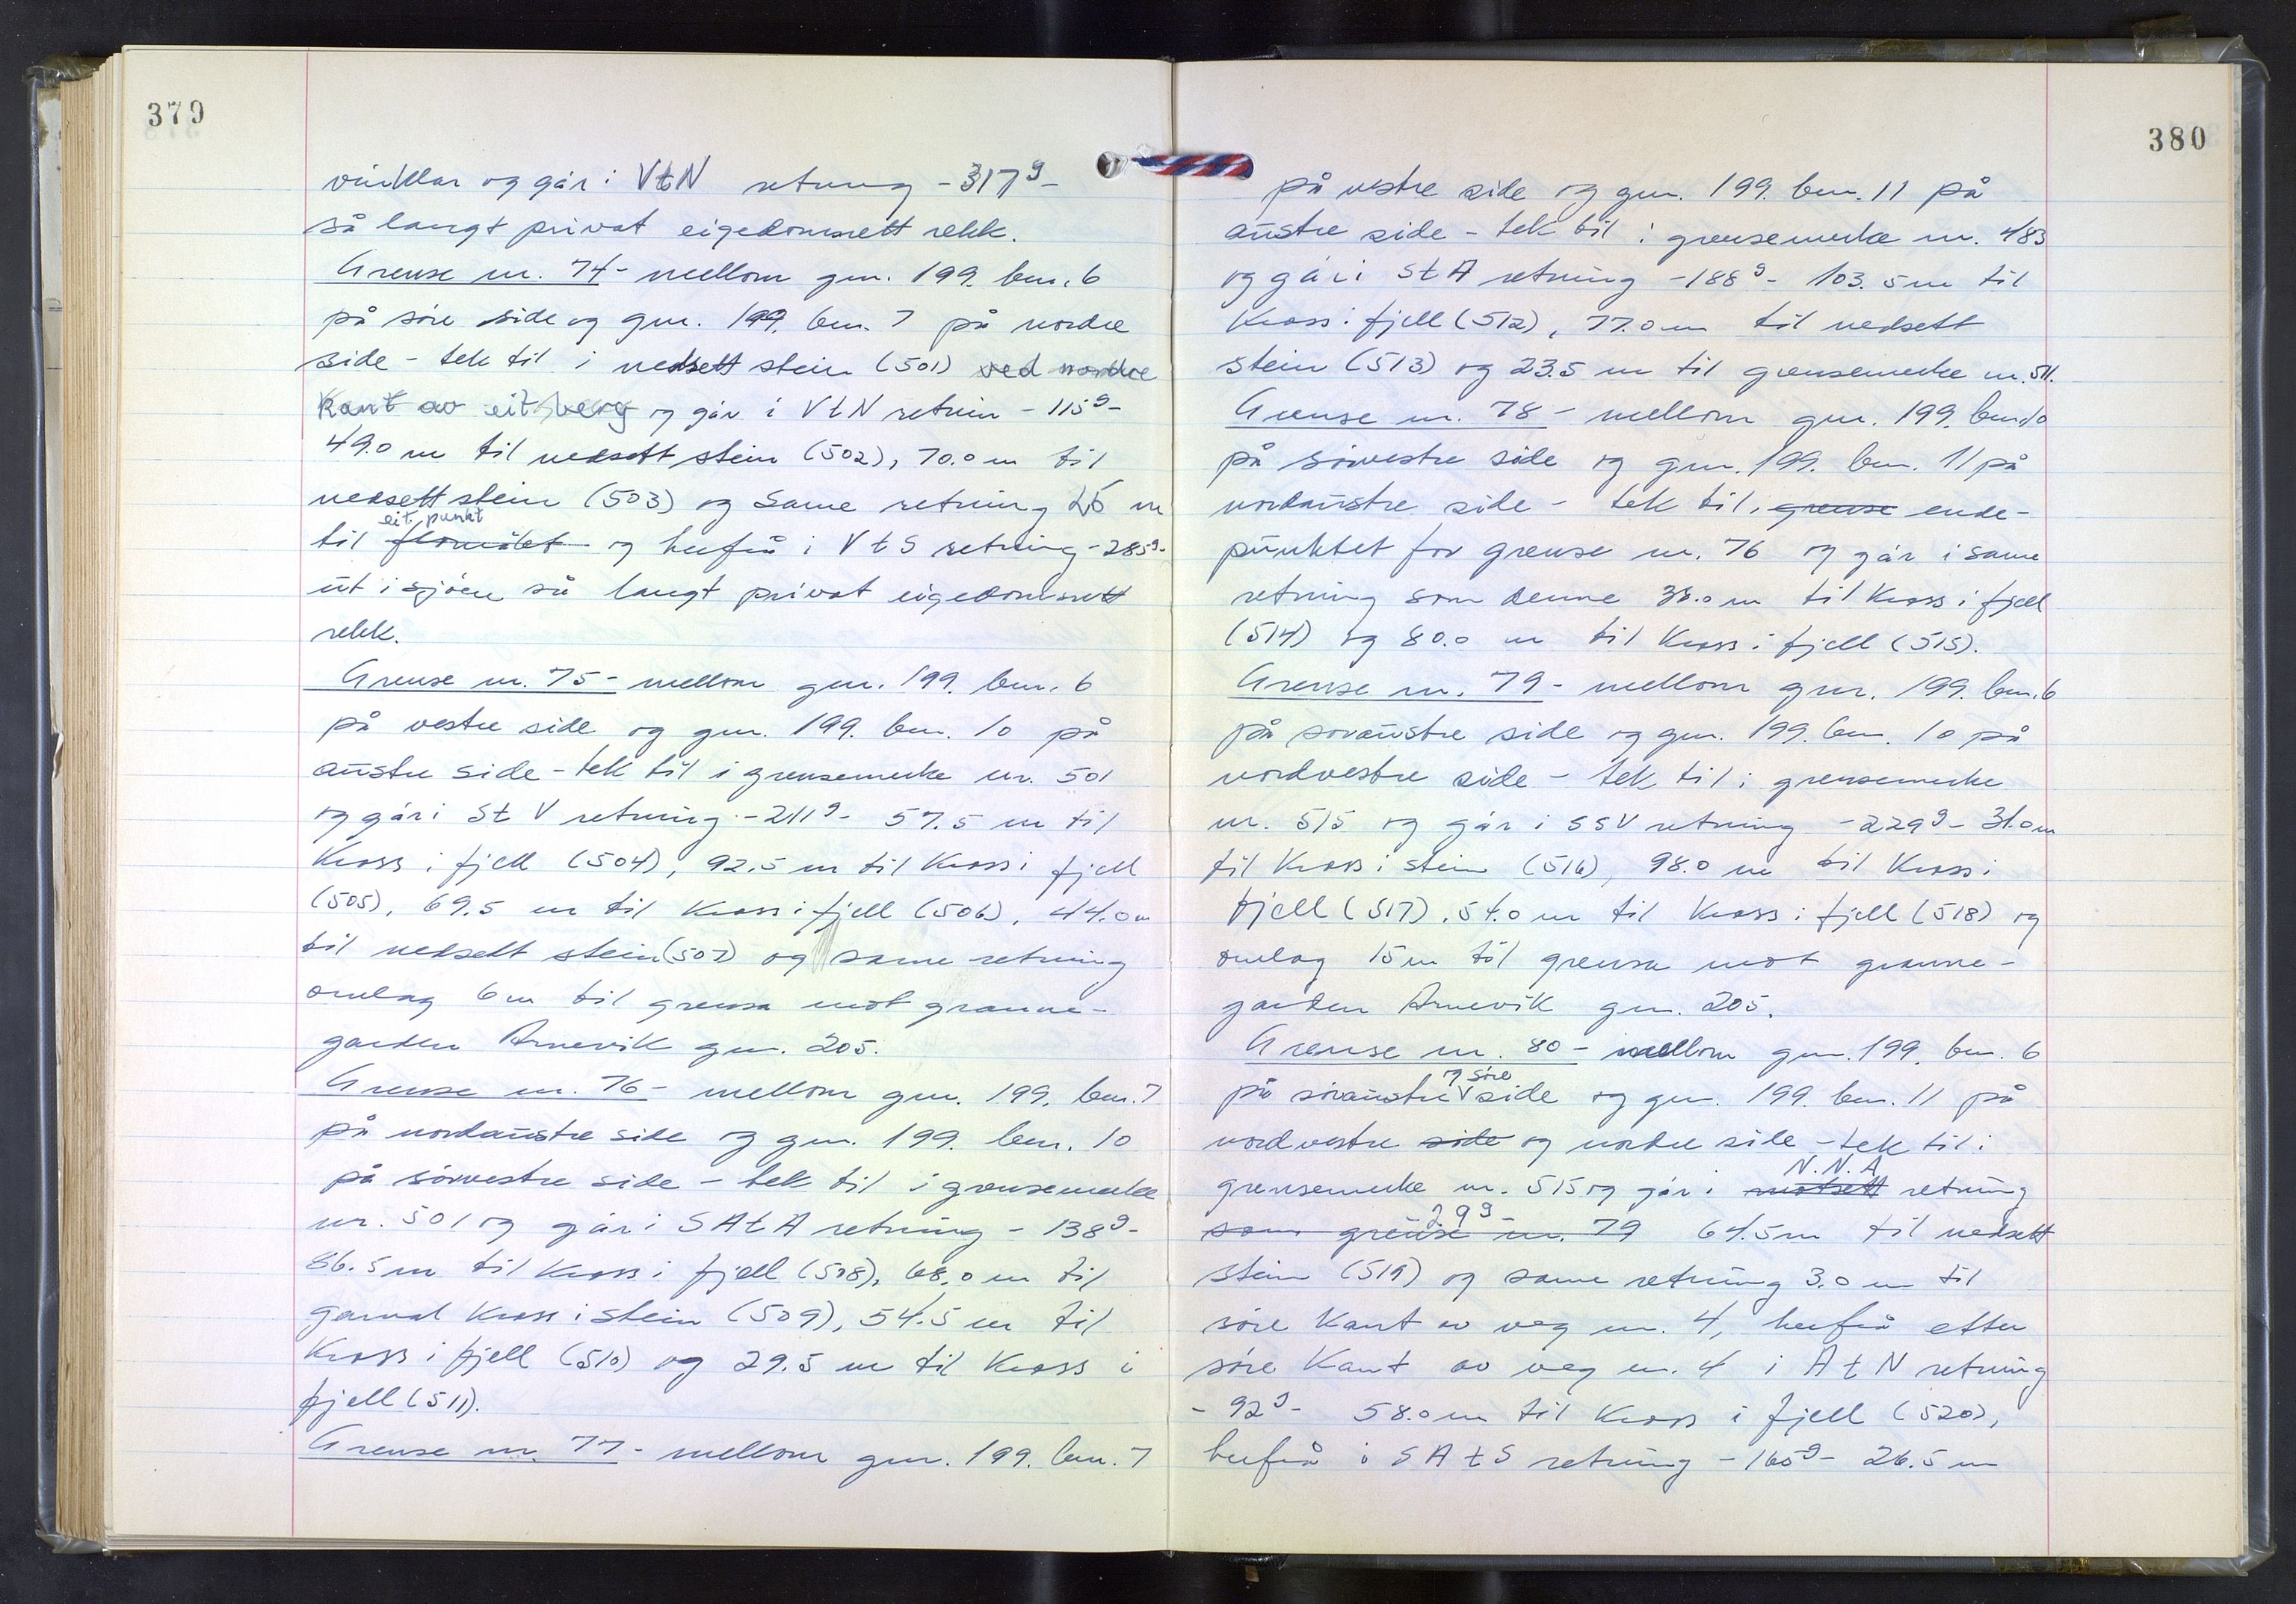 379
vinklar og går i VtN retning - 317g -
så langt privat eigedomsrett rekk.
Grense nr. 74 - mellom gnr. 199. bnr. 6
på söre side og gnr. 199. bnr. 7 på nordre
side - tek til i nedsett stein (501) ved nordre
kant av eit berg og går i VtN retnin - 115g -
49.0 m til nedsett stein (502), 70.0 m til
nedsett stein (503) og same retning 25 m
eit punkt
til flomålet og herfrå i VtS retning - 285g -
ut i sjöen så langt privat eigedomsrett
rekk.
Grense nr. 75 - mellom gnr. 199. bnr. 6
på vestre side og gnr. 199. bnr. 10 på
austre side - tek til i grensemerke nr. 501
og går i StV retning - 211g - 57.5 m til
kross i fjell (504), 92.5 m til kross i fjell
(505), 69.5 m til kross i fjell (506), 44.0 m
til nedsett stein (507) og same retning
omlag 6 m til grensa mot granne-
garden Arnevik gnr. 205.
Grense nr. 76 - mellom gnr. 199. bnr. 7
på nordaustre side og gnr. 199. bnr. 10
på sörvestre side - tek til i grensemerke
nr. 501 og går i SAtA retning - 138g -
86.5 m til kross i fjell (508), 68.0 m til
gamal kross i stein (509), 54.5 m til
kross i fjell (510) og 29.5 m til kross i
fjell (511).
Grense nr. 77 - mellom gnr. 199. bnr. 7
380
på vestre side og gnr. 199. bnr. 11 på
austre side - tek til i grensemerke nr. 483
og går i StA retning - 188g - 103.5 m til
kross i fjell (512), 77.0 m til nedsett
stein (513) og 23.5 m til grensemerke nr. 511.
Grense nr. 78 - mellom gnr. 199. bnr. 10
på sörvestre side og gnr. 199. bnr. 11 på
nordaustre side - tek til i grense ende-
punktet for grense nr. 76 og går i same
retning som denne 38.0 m til kross i fjell
(514) og 80.0 m til kross i fjell (515).
Grense nr. 79 - mellom gnr. 199. bnr. 6
på söraustre side og gnr. 199. bnr. 10 på
nordvestre side - tek til i grensemerke
nr. 515 og går i SSV retning - 229g - 31.0 m
til kross i stein (516), 98.0 m til kross i
fjell (517), 54.0 m til kross i fjell (518) og
omlag 15 m til grensa mot granne-
garden Arnevik gnr. 205.
Grense nr. 80 - mellom gnr. 199. bnr. 6
og söre
på söraustre side og gnr. 199. bnr. 11 på
nordvestre side og nordre side - tek til i
N.N.A
grensemerke nr. 515 og går i motsett retning
29g -
som grense nr. 79 64.5 m til nedsett
stein (519) og same retning 3.0 m til
söre kant av veg nr. 4, herfrå etter
söre kant av veg nr. 4 i AtN retning
- 92g - 58.0 m til kross i fjell (520),
herfrå i SAtS retning - 165g - 26.5 m